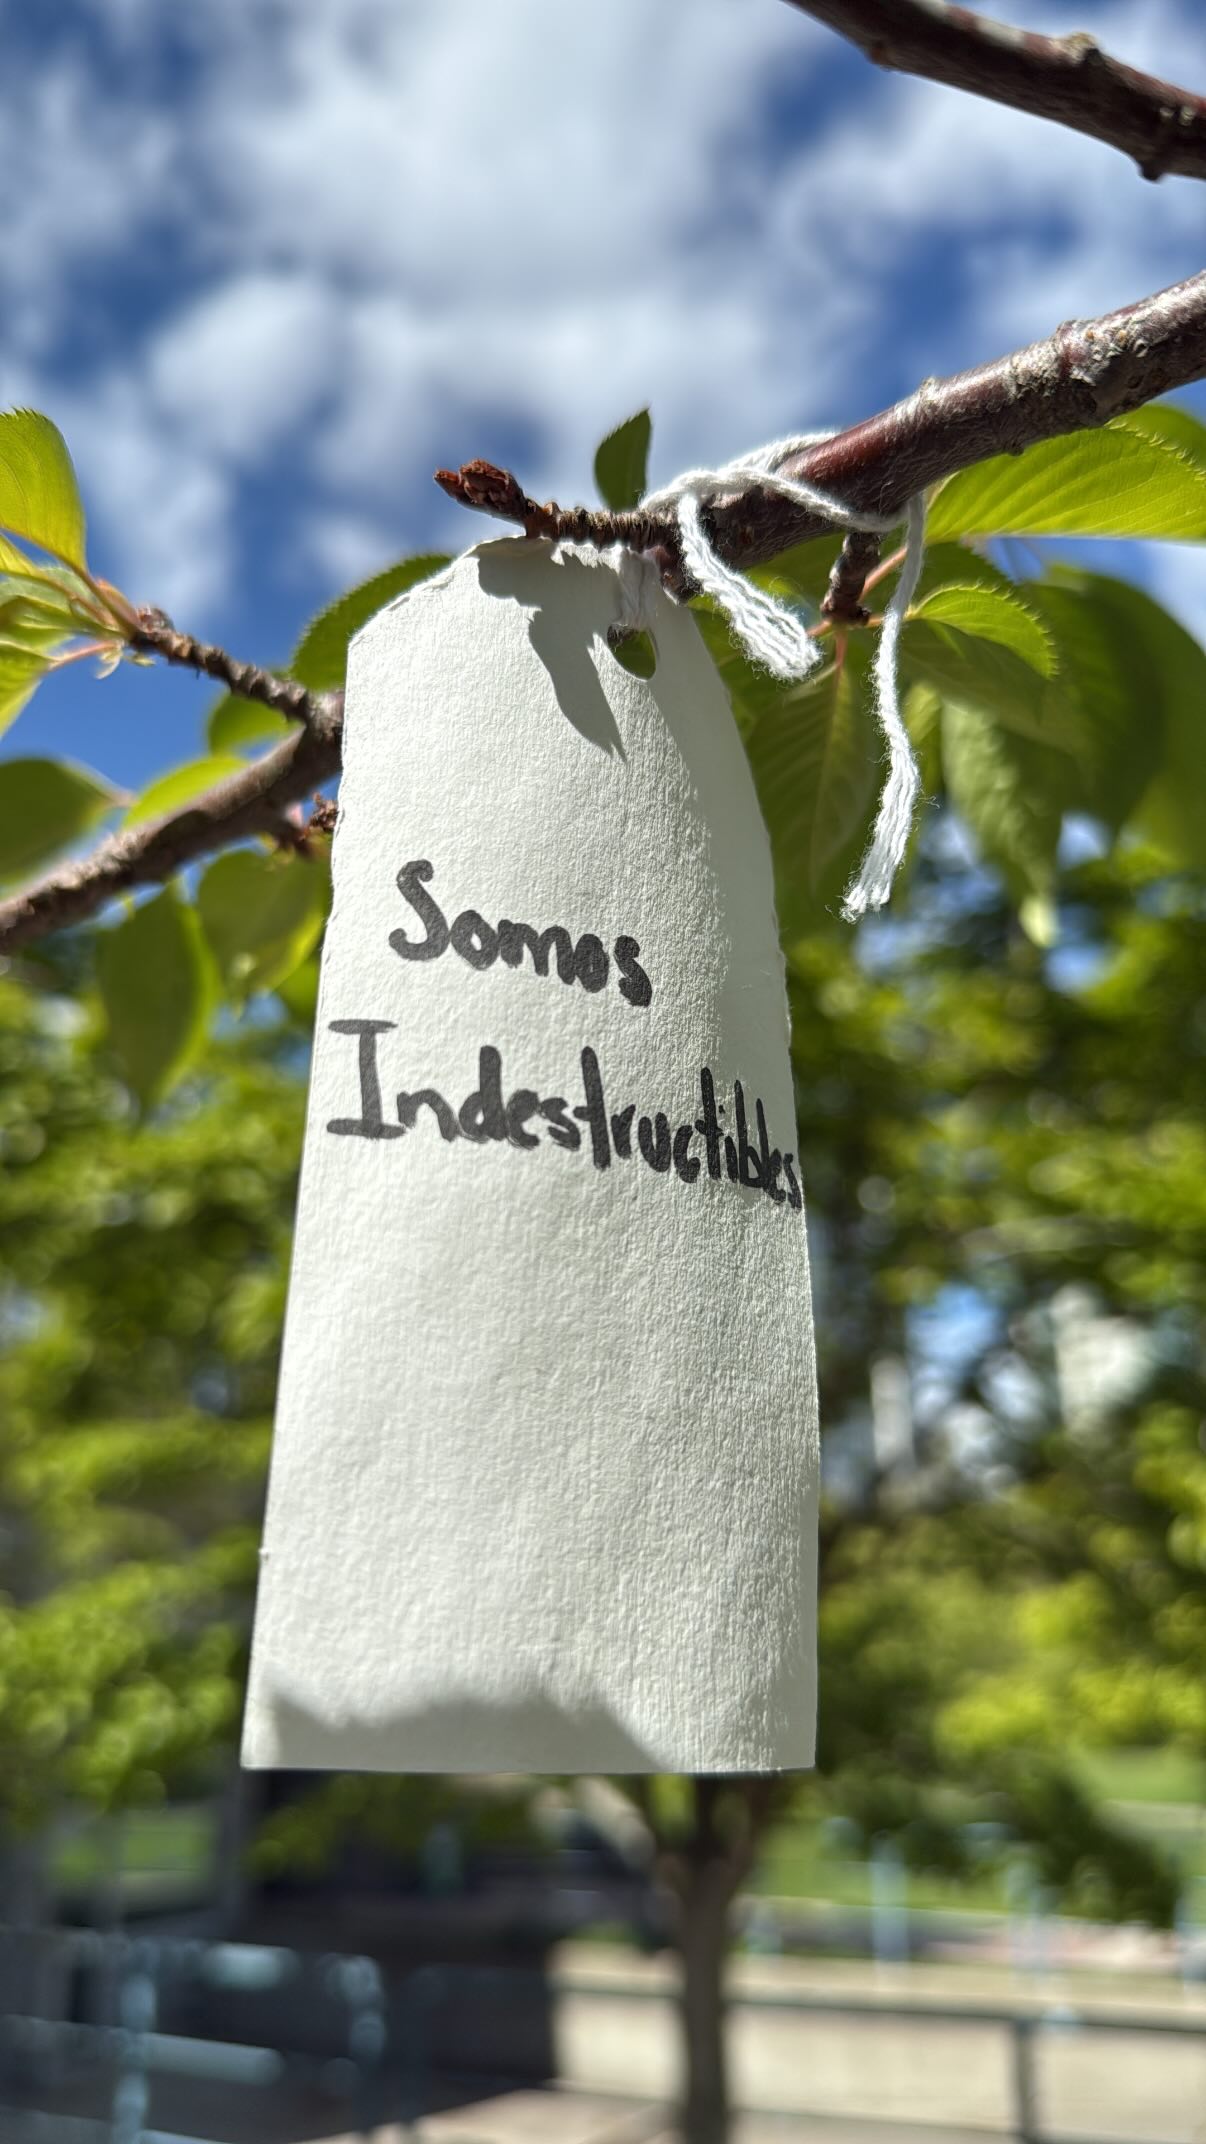 Somos
Indestructibles